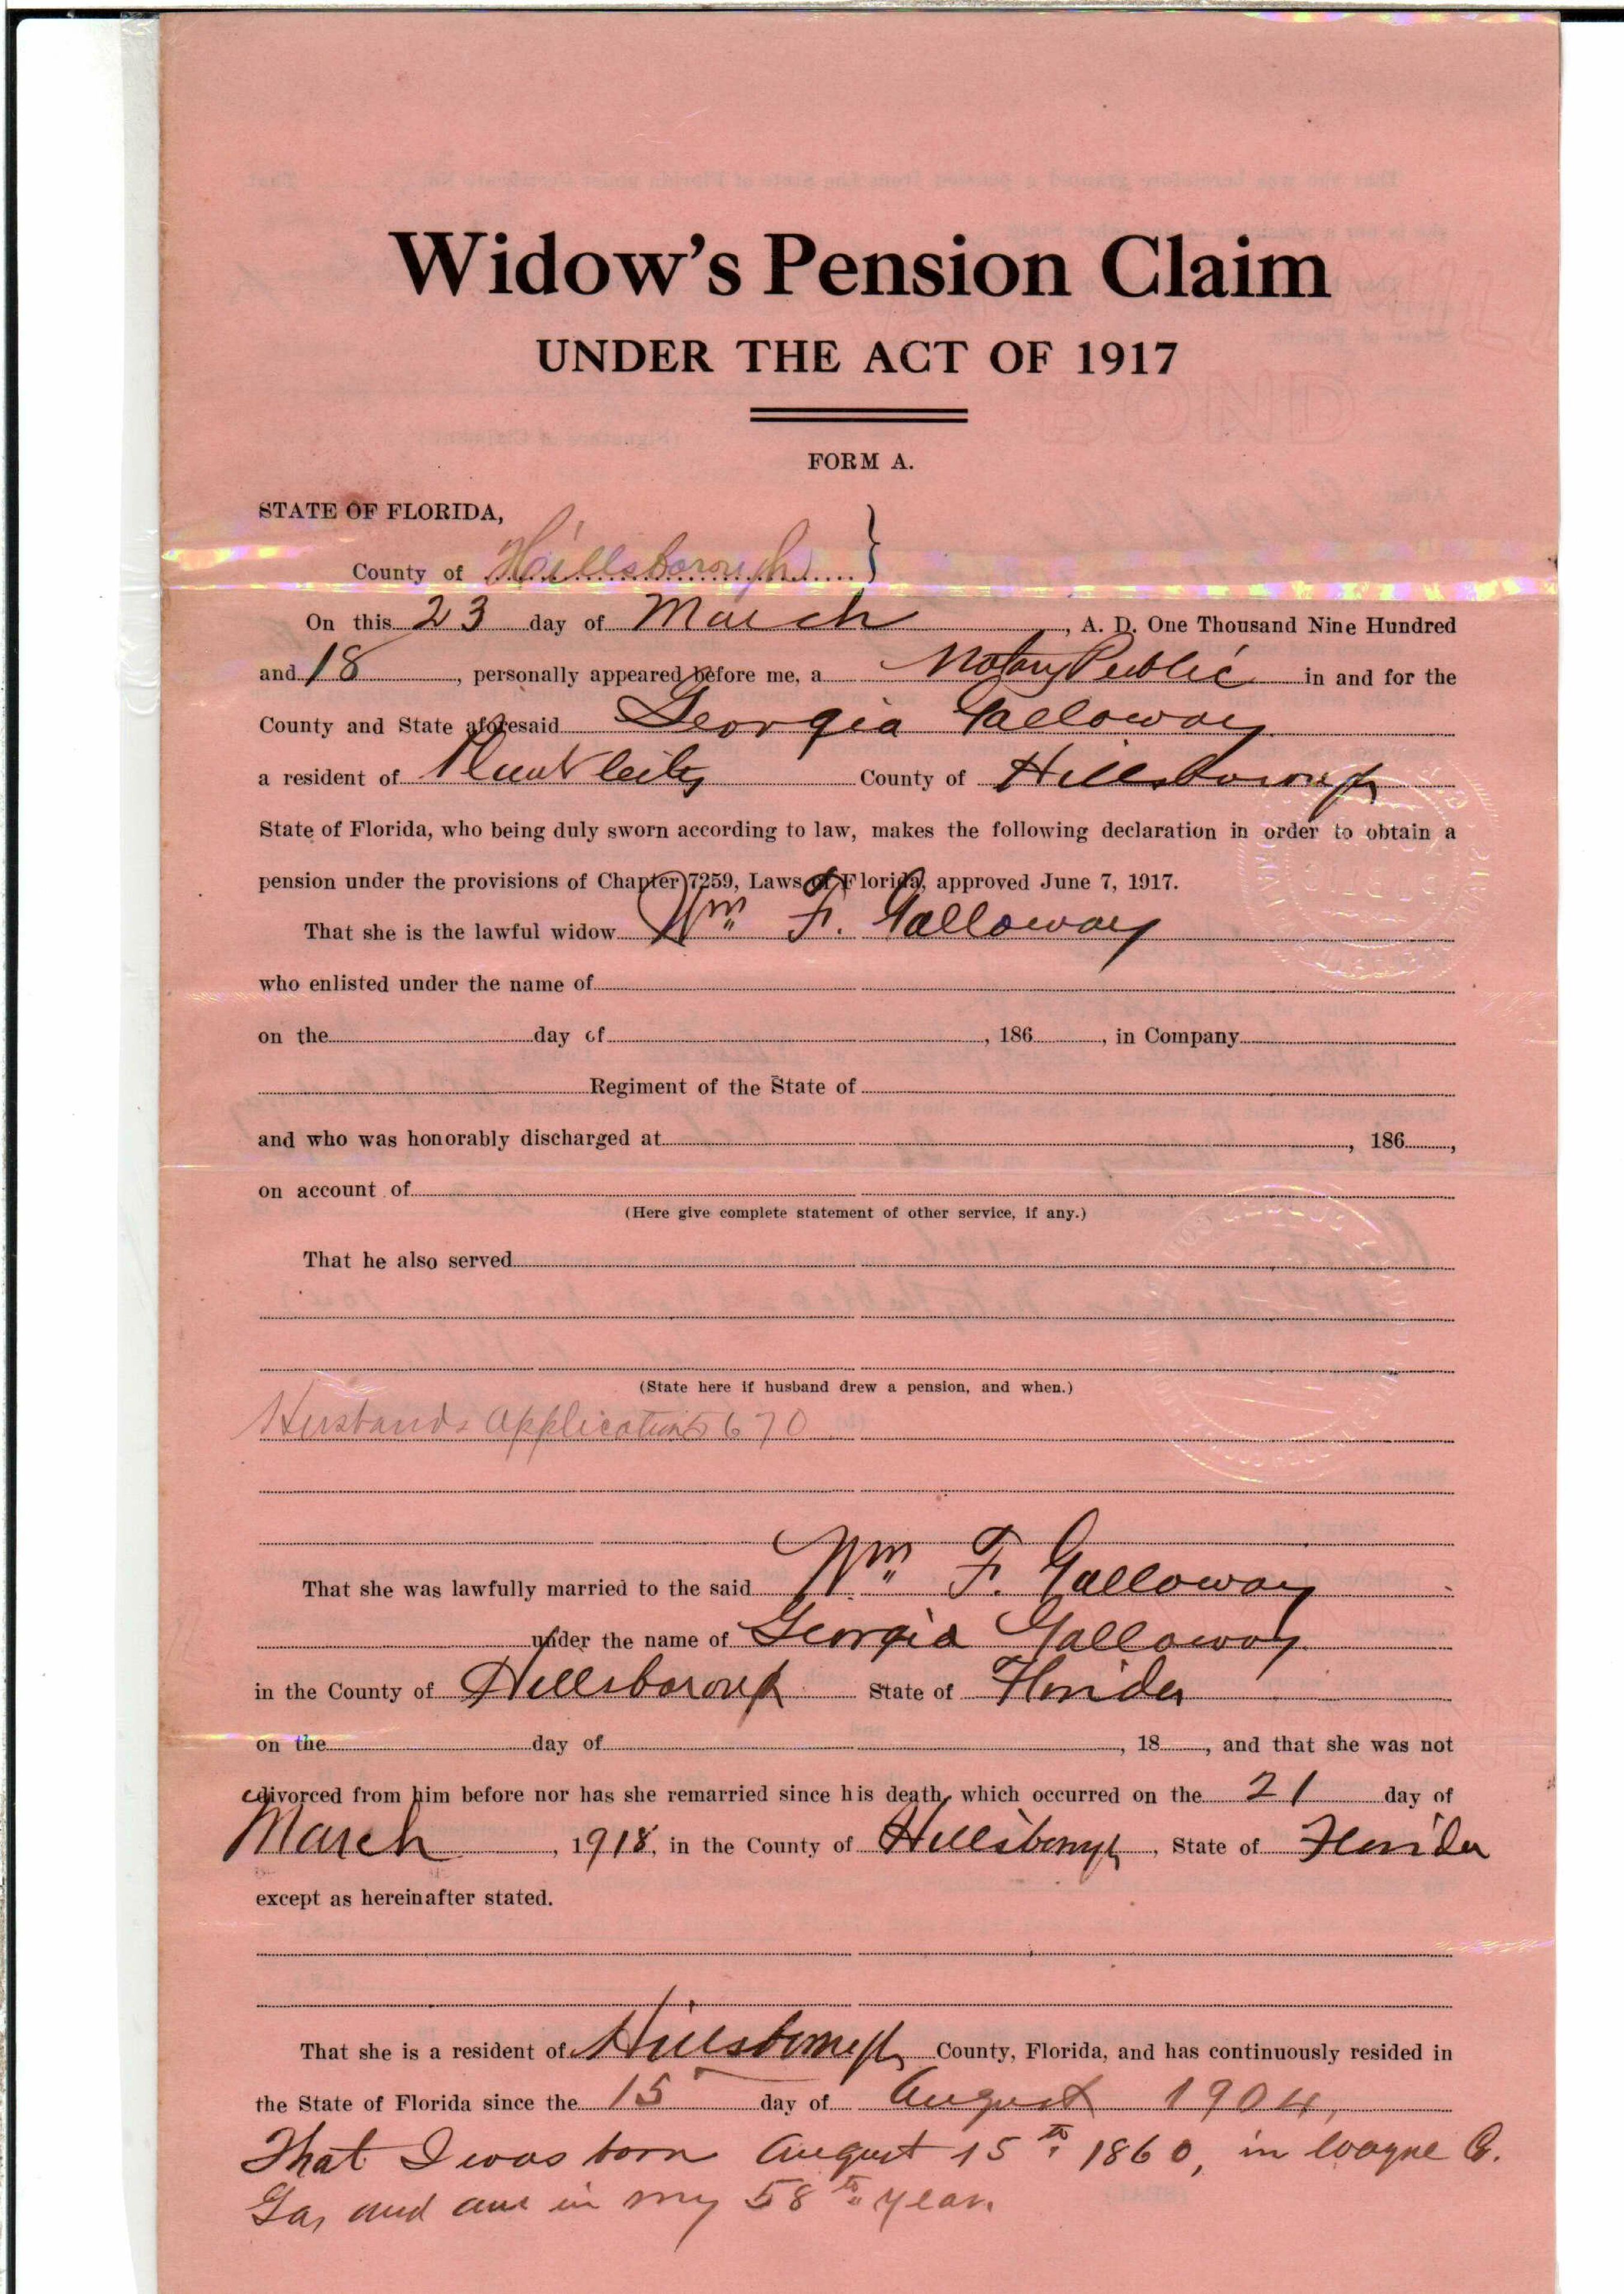 Widow's Pension Claim
UNDER THE ACT OF 1917
FORM A.
STATE OF FLORIDA,
County of Hillsborough
On this 23 day of March, A. D. One Thousand Nine Hundred
and 18, personally appeared before me, a Notary Public in and for the
County and State aforesaid Georgia Galloway
a resident of Plant City County of Hillsborough
State of Florida, who being duly sworn according to law, makes the following declaration in order to obtain a
pension under the provisions of Chapter 7259, Laws of Florida, approved June 7, 1917.
That she is the lawful widow Wm F. Galloway
who enlisted under the name of
on the day of , 186 , in Company
Regiment of the State of
and who was honorably discharged at , 186 ,
on account of
(Here give complete statement of other service, if any.)
That he also served
(State here if husband drew a pension, and when.)
Husbands Application 5670
That she was lawfully married to the said Wm F. Galloway
under the name of Georgia Galloway
in the County of Hillsborough State of Florida
on the day of , 18 , and that she was not
divorced from him before nor has she remarried since his death, which occurred on the 21 day of
March, 1918, in the County of Hillsborough, State of Florida
except as hereinafter stated.
That she is a resident of Hillsborough County, Florida, and has continuously resided in
the State of Florida since the 15 day of August 1904,
That I was born August 15th 1860, in Wayne Co.
Ga, and am in my 58th year.